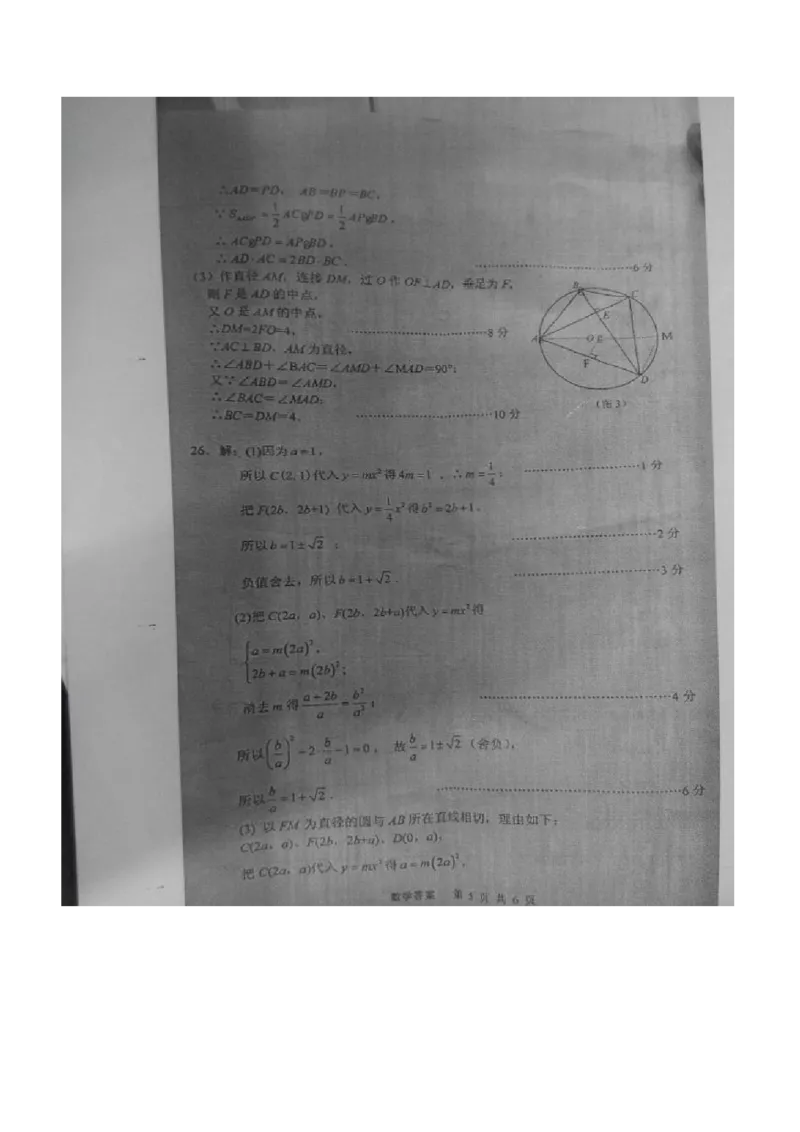 ∴AD=PD, AB=BP=BC,
∵S△ADP=1/2 AC•PD=1/2 AP•BD,
∴AC•PD=AP•BD,
∴AD·AC=2BD·BC. ……6分
(3)作直径AM,连接DM,过O作OF⊥AD,垂足为F,
则F是AD的中点,
又O是AM的中点,
∴DM=2FO=4, ……8分
∵AC⊥BD、AM为直径,
∴∠ABD+∠BAC=∠AMD+∠MAD=90°;
又∵∠ABD=∠AMD,
∴∠BAC=∠MAD;
∴BC=DM=4. ……10分
B
C
E
A
O
M
F
D
(图3)
26.解:(1)因为a=1,
所以C(2,1)代入y=mx²得4m=1,∴m=1/4; ……1分
把F(2b,2b+1)代入y=1/4 x²得b²=2b+1.
所以b=1±√2; ……2分
负值舍去,所以b=1+√2. ……3分
(2)把C(2a,a)、F(2b,2b+a)代入y=mx²得
a=m(2a)²,
2b+a=m(2b)²;
消去m得(a+2b)/a=b²/a²; ……4分
所以(b/a)²-2·b/a-1=0,故b/a=1±√2(舍负),
所以b/a=1+√2. ……6分
(3)以FM为直径的圆与AB所在直线相切,理由如下:
C(2a,a)、F(2b,2b+a)、D(0,a),
把C(2a,a)代入y=mx²得a=m(2a)²,
数学答案 第5页共6页